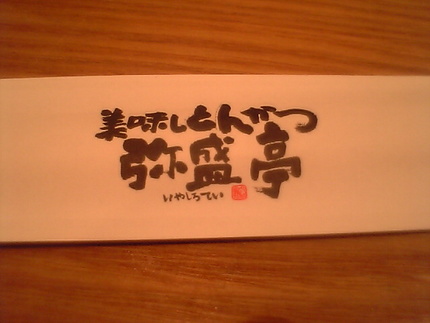 美味しとんかつ
弥盛亭
いやしろてい